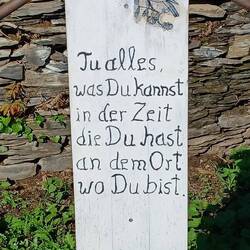 Tu alles,
was Du kannst
in der Zeit
die Du hast
an dem Ort
wo Du bist.